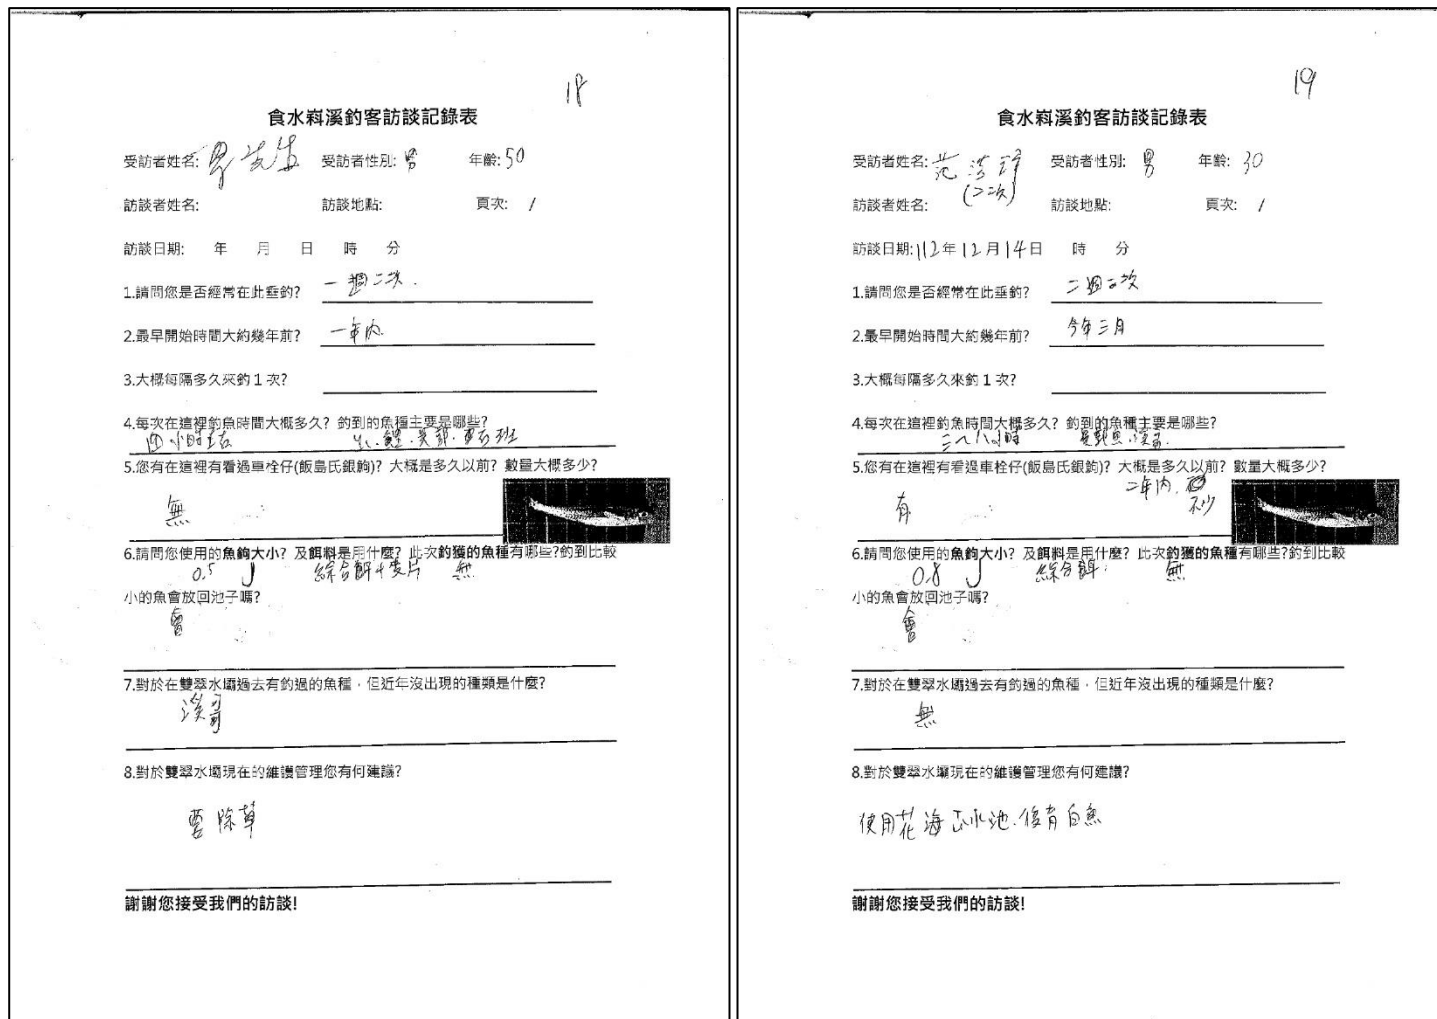 18
食水嵙溪釣客訪談記錄表
受訪者姓名: 先生 受訪者性別: 男 年齡: 50
訪談者姓名: 訪談地點: 頁次: 1
訪談日期: 年 月 日 時 分
1.請問您是否經常在此垂釣? 一週二次.
2.最早開始時間大約幾年前? 一年內
3.大概每隔多久來釣 1 次?
4.每次在這裡釣魚時間大概多久? 釣到的魚種主要是哪些?
四小時左右
5.您有在這裡有看過車栓仔(飯島氏銀鮈)? 大概是多久以前? 數量大概多少?
無
6.請問您使用的魚鉤大小? 及餌料是用什麼? 此次釣獲的魚種有哪些?釣到比較
0.5 綜合餌+麥片 無
小的魚會放回池子嗎?
會
7.對於在雙翠水壩過去有釣過的魚種，但近年沒出現的種類是什麼?
溪哥
8.對於雙翠水壩現在的維護管理您有何建議?
要除草
謝謝您接受我們的訪談!
19
食水嵙溪釣客訪談記錄表
受訪者姓名: 范 受訪者性別: 男 年齡: 30
(二次)
訪談者姓名: 訪談地點: 頁次: 1
訪談日期: 112年12月14日 時 分
1.請問您是否經常在此垂釣? 二週一次
2.最早開始時間大約幾年前? 今年三月
3.大概每隔多久來釣 1 次?
4.每次在這裡釣魚時間大概多久? 釣到的魚種主要是哪些?
小時 吳郭魚.溪哥.
5.您有在這裡有看過車栓仔(飯島氏銀鮈)? 大概是多久以前? 數量大概多少?
有 二年內. 不少
6.請問您使用的魚鉤大小? 及餌料是用什麼? 此次釣獲的魚種有哪些?釣到比較
0.8 綜合餌. 無
小的魚會放回池子嗎?
會
7.對於在雙翠水壩過去有釣過的魚種，但近年沒出現的種類是什麼?
無
8.對於雙翠水壩現在的維護管理您有何建議?
使用花海 水池.復育白魚
謝謝您接受我們的訪談!